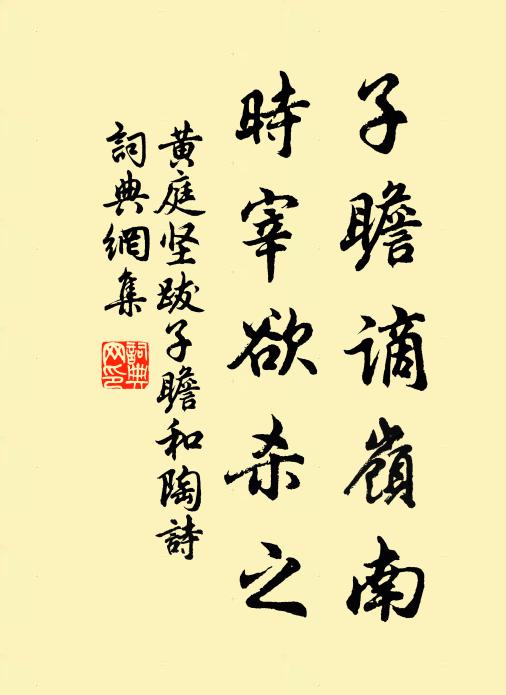 子瞻谪嶺南
時宰欲杀之
黄庭坚跋子瞻和陶詩
詞典網集
詞典网印